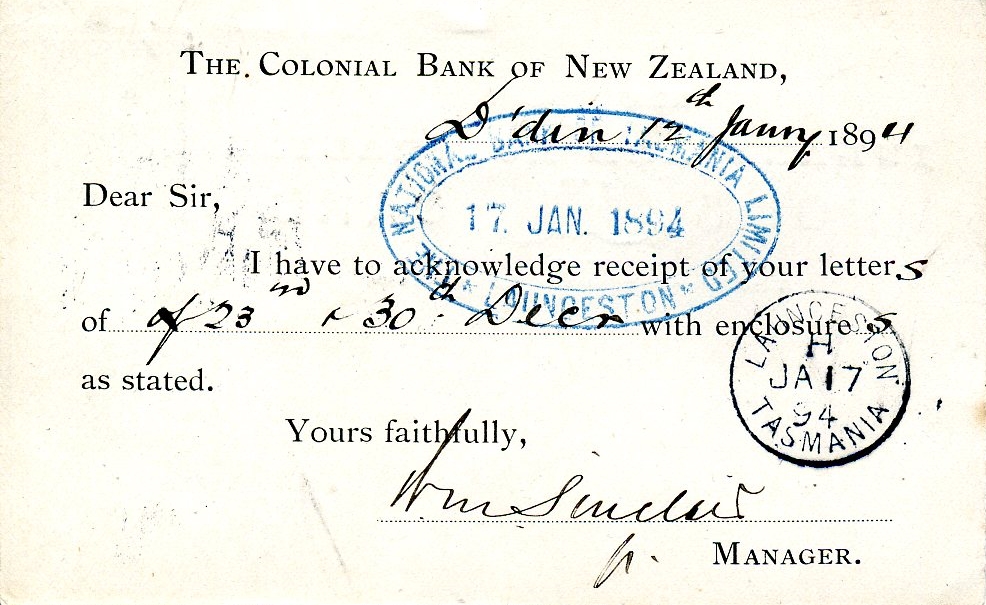 THE COLONIAL BANK OF NEW ZEALAND,
D'din 12th Janry 1894
THE NATIONAL BANK OF TASMANIA LIMITED
17. JAN. 1894
* LAUNCESTON *
Dear Sir,
I have to acknowledge receipt of your letters
of of 23rd & 30th Decr with enclosures
as stated.
LAUNCESTON
H
JA 17
94
TASMANIA
Yours faithfully,
Wm Sinclair
p. MANAGER.